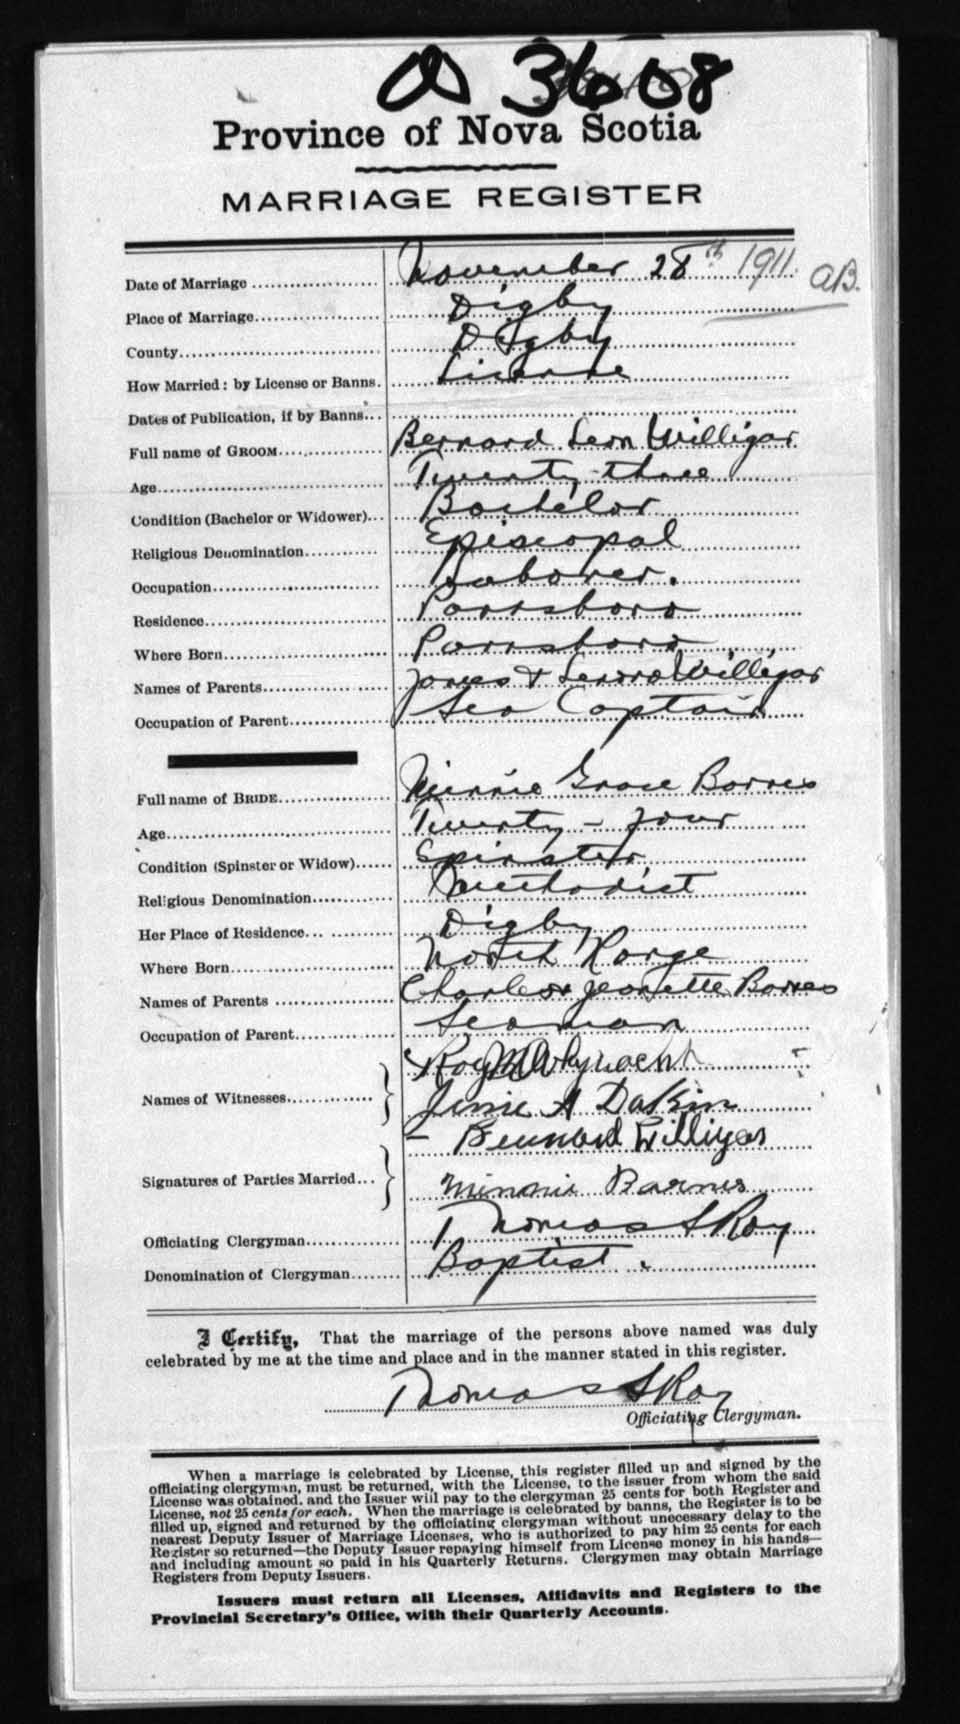 A 3608
Province of Nova Scotia
MARRIAGE REGISTER
Date of Marriage November 28th 1911. AB.
Place of Marriage Digby
County Digby
How Married: by License or Banns. License
Dates of Publication, if by Banns
Full name of GROOM Bernard Leon Willigar
Age Twenty-three
Condition (Bachelor or Widower) Bachelor
Religious Denomination Episcopal
Occupation Laborer.
Residence Parrsboro
Where Born Parrsboro
Names of Parents James & Lenora Willigar
Occupation of Parent Sea Captain
Full name of BRIDE Minnie Grace Barnes
Age Twenty-four
Condition (Spinster or Widow) Spinster
Religious Denomination Methodist
Her Place of Residence Digby
Where Born North Range
Names of Parents Charles & Jeanette Barnes
Occupation of Parent Seaman
Names of Witnesses Roy
Jessie A Dakin
Bernard Willigar
Signatures of Parties Married Minnie Barnes
Officiating Clergyman Thomas S Roy
Denomination of Clergyman Baptist.
I Certify, That the marriage of the persons above named was duly
celebrated by me at the time and place and in the manner stated in this register.
Thomas S Roy
Officiating Clergyman.
When a marriage is celebrated by License, this register filled up and signed by the
officiating clergyman, must be returned, with the License, to the issuer from whom the said
License was obtained. and the Issuer will pay to the clergyman 25 cents for both Register and
License, not 25 cents for each. When the marriage is celebrated by banns, the Register is to be
filled up, signed and returned by the officiating clergyman without unnecessary delay to the
nearest Deputy Issuer of Marriage Licenses, who is authorized to pay him 25 cents for each
Register so returned—the Deputy Issuer repaying himself from License money in his hands—
and including amount so paid in his Quarterly Returns. Clergymen may obtain Marriage
Registers from Deputy Issuers.
Issuers must return all Licenses, Affidavits and Registers to the
Provincial Secretary's Office, with their Quarterly Accounts.